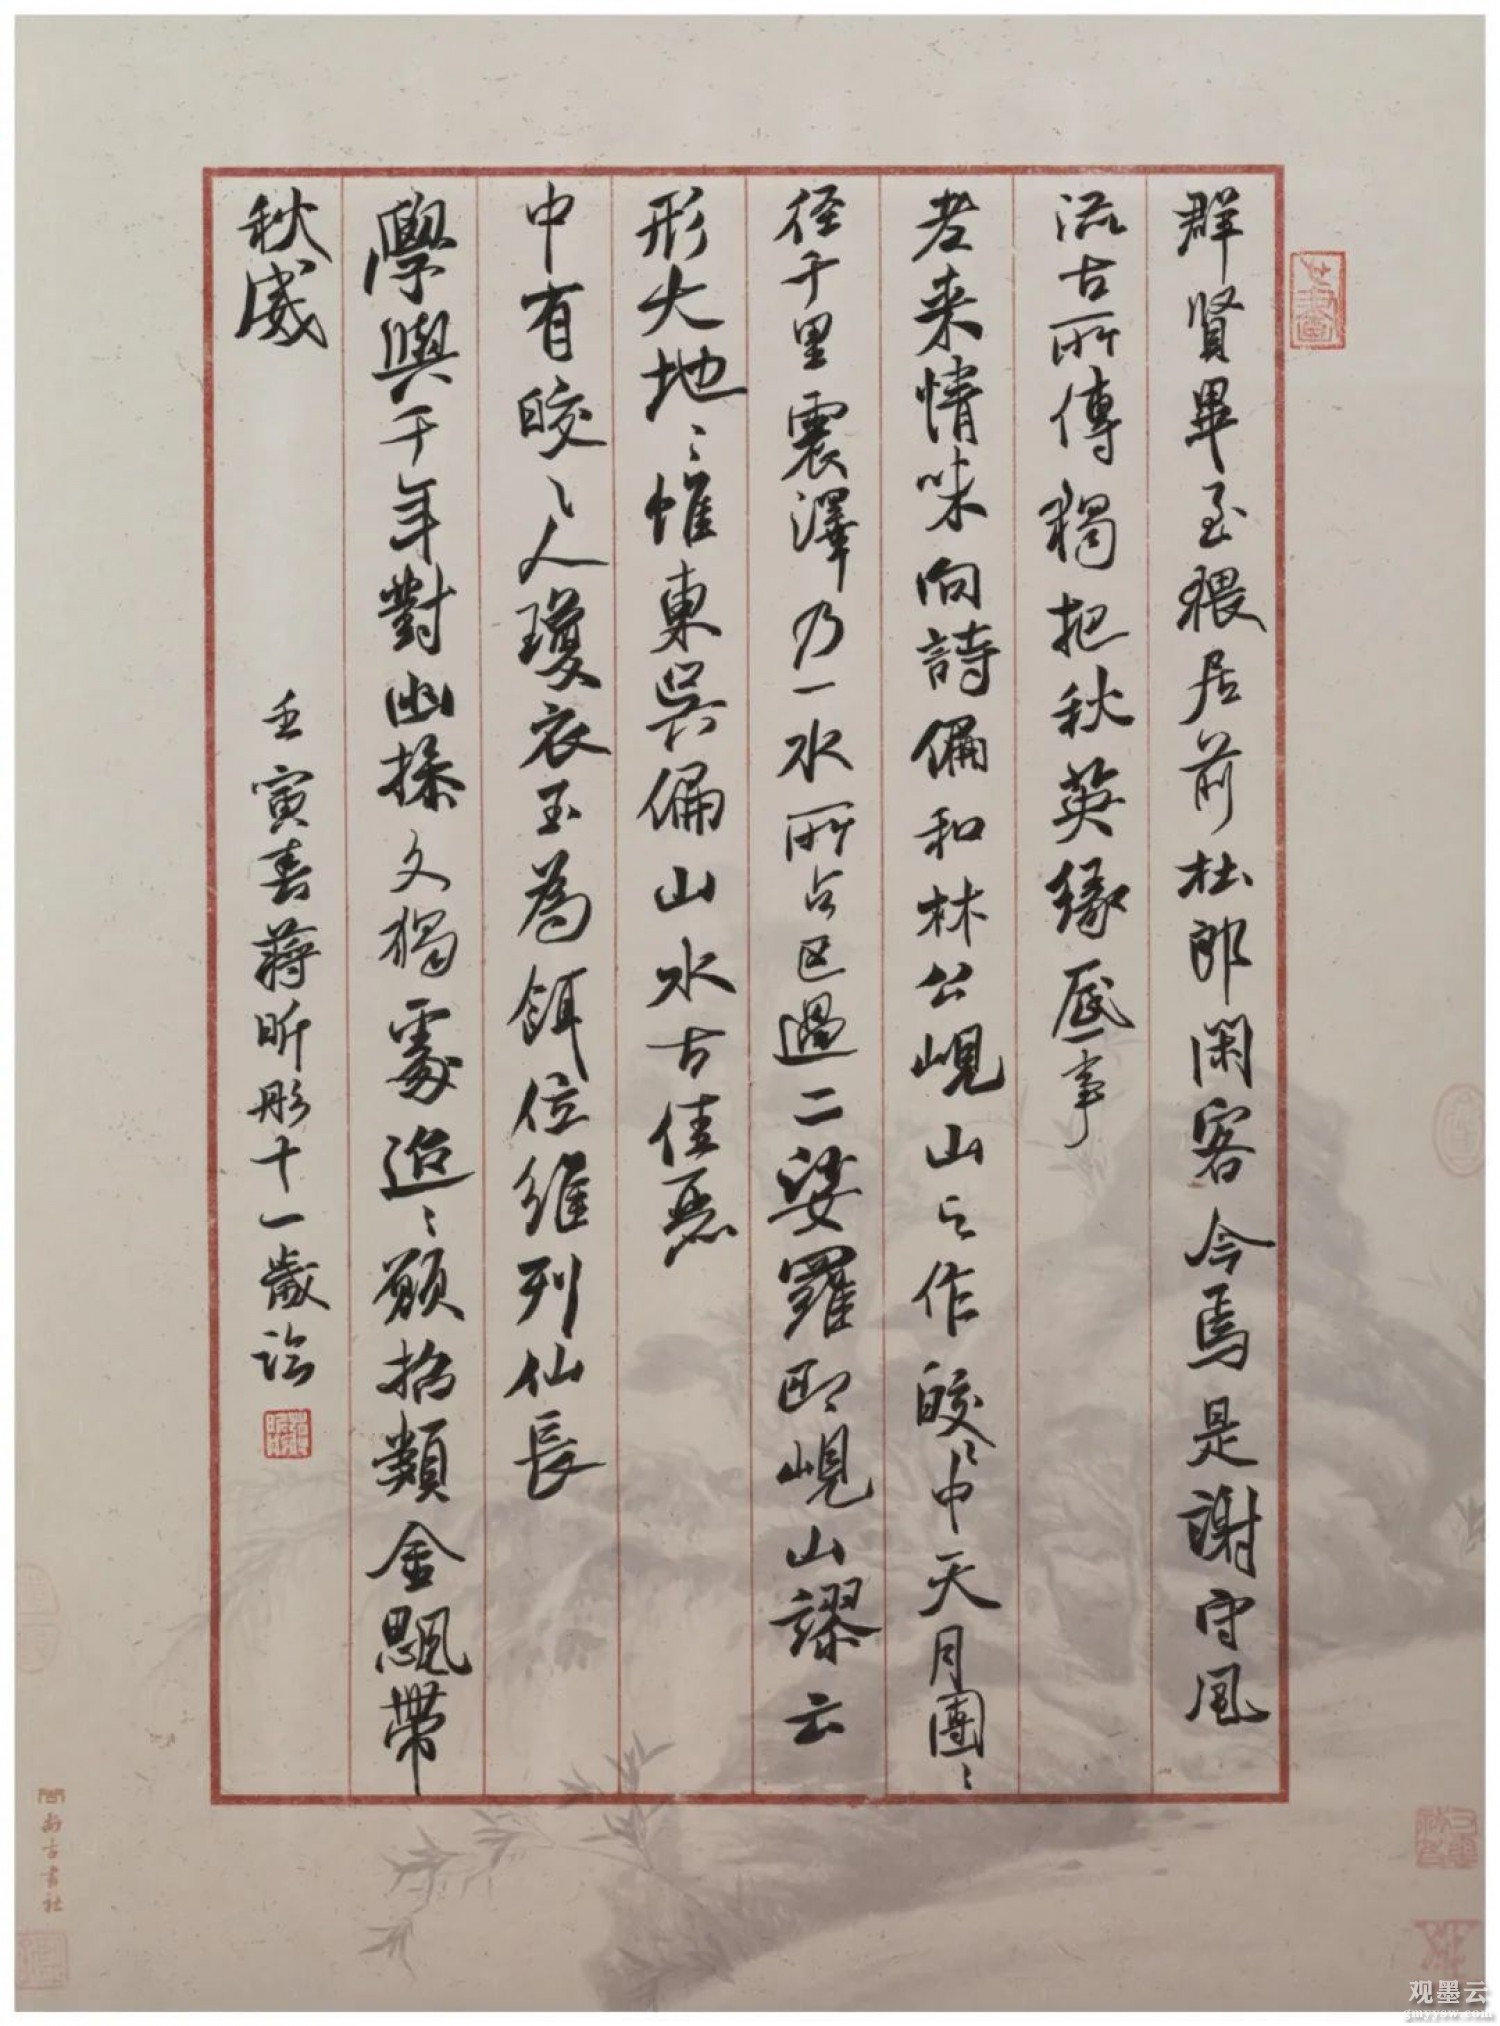 群賢畢至猥居前杜郎閑客今焉是謝守風
流古所傳獨把秋英緣底事
老来情味向詩偏和林公峴山之作皎皎中天月團團
径千里震澤乃一水所占区過二娑羅即峴山謬云
形大地地惟東吳偏山水古佳麗
中有皎皎人瓊衣玉為餌位維列仙長
學與千年對幽操久獨處迢迢願招類金飈帶
秋威
壬寅春蔣昕彤十一歲臨
尚古書社
观墨云
gmyysw.com